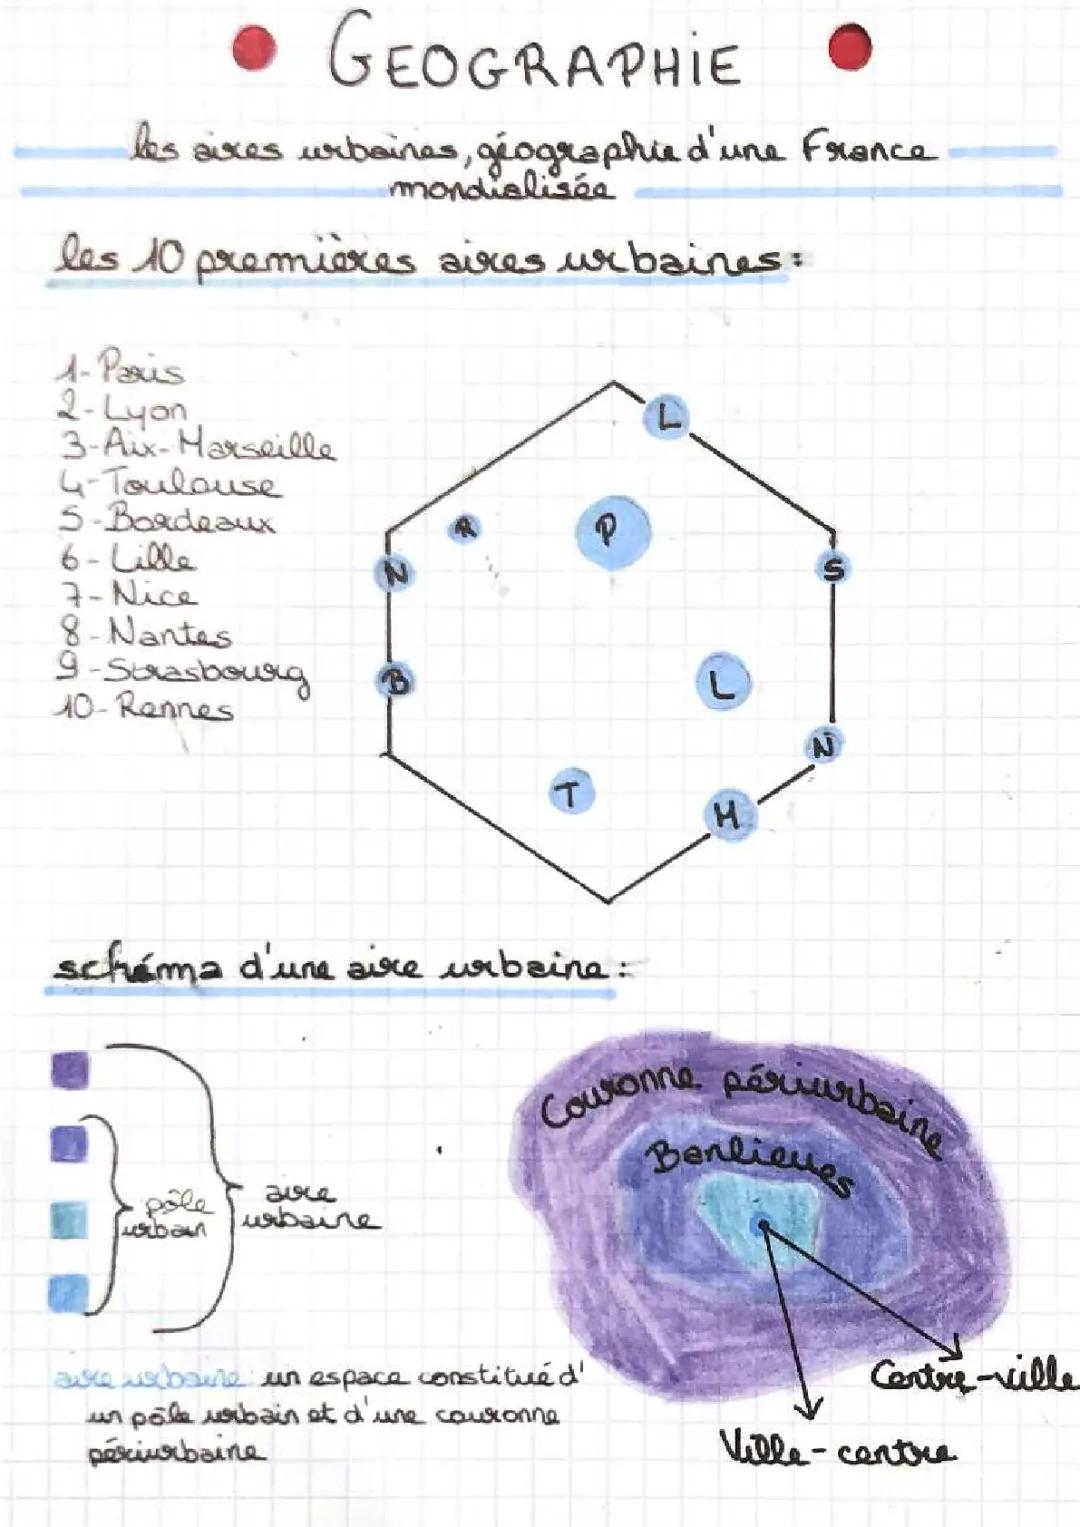 GEOGRAPHIE
les aires urbaines, géographie d'une France
mondialisée
les 10 premières aires urbaines :
1- Paris
2- Lyon
3- Aix-Marseille
4- Toulouse
5- Bordeaux
6- Lille
7- Nice
8- Nantes
9- Strasbourg
10- Rennes
L
R
P
N
S
B
L
N
T
M
schéma d'une aire urbaine :
pôle
urbain
aire
urbaine
Couronne périurbaine
Banlieues
Centre-ville
Ville-centre
aire urbaine : un espace constitué d'
un pôle urbain et d'une couronne
périurbaine